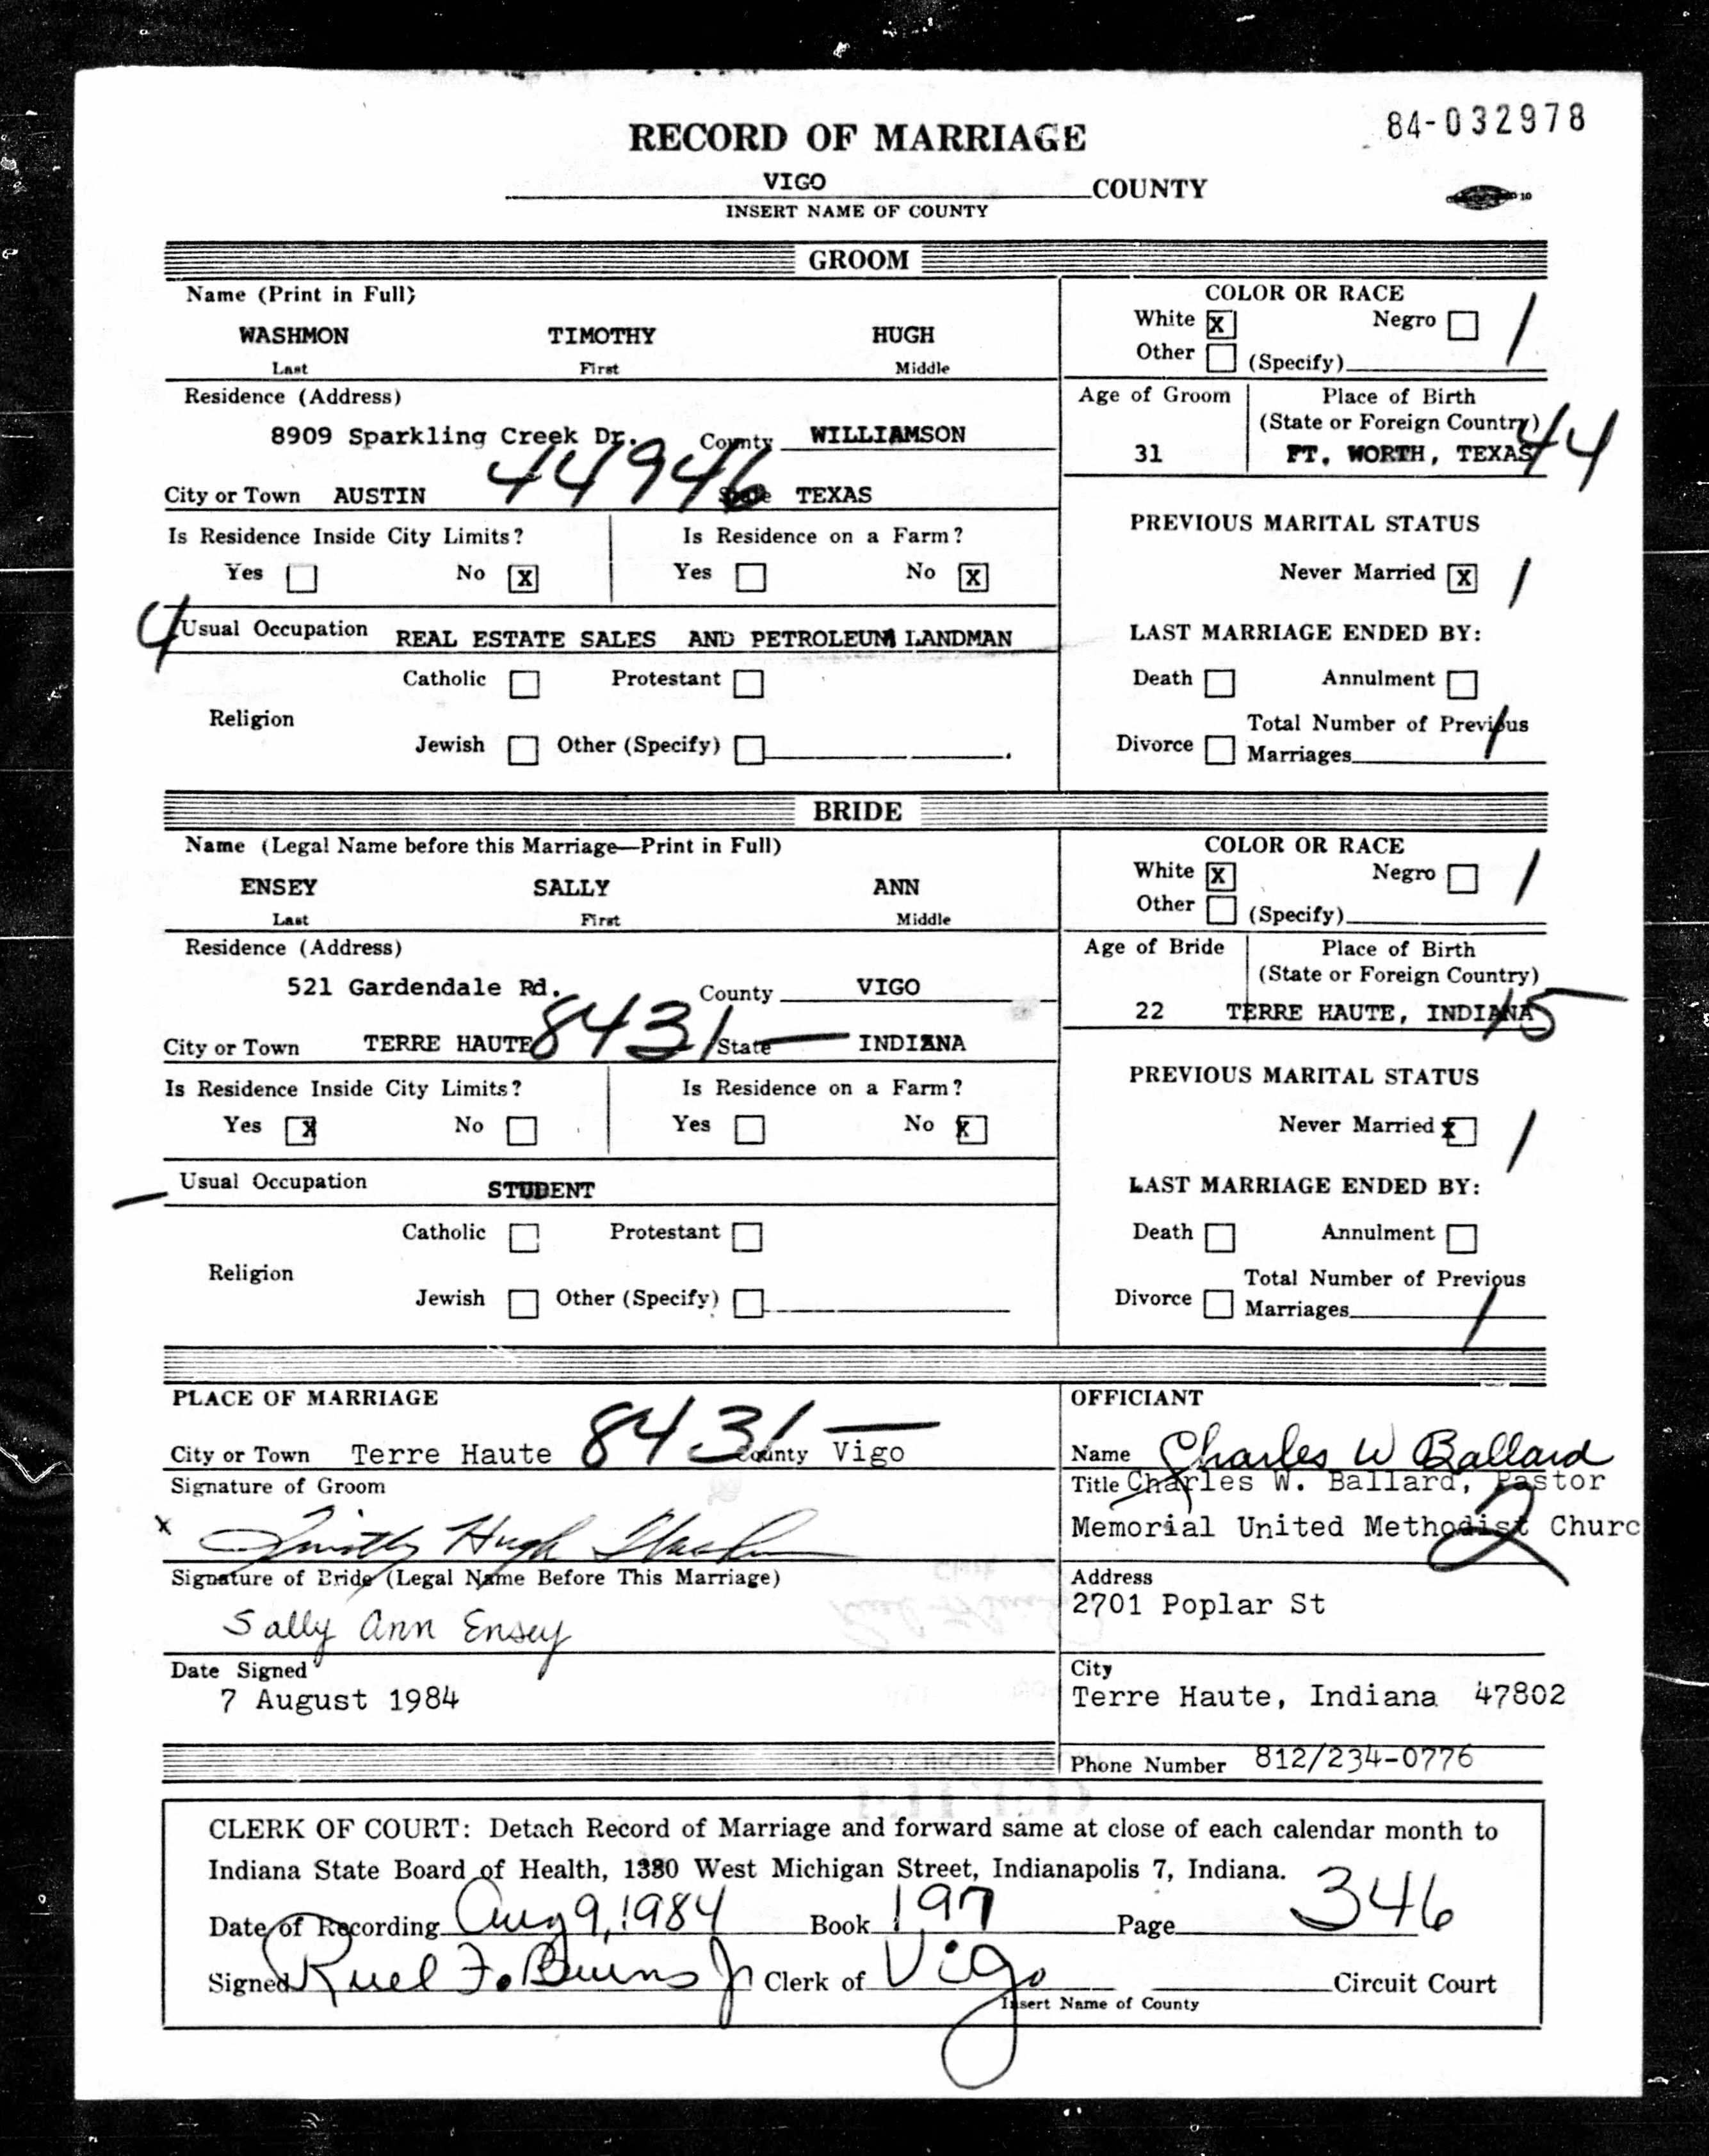 84-032978
RECORD OF MARRIAGE
VIGO COUNTY
INSERT NAME OF COUNTY
GROOM
Name (Print in Full)
WASHMON TIMOTHY HUGH
Last First Middle
COLOR OR RACE
White X Negro 1
Other (Specify)
Residence (Address)
8909 Sparkling Creek Dr. County WILLIAMSON
City or Town AUSTIN 44946 State TEXAS
Age of Groom Place of Birth
(State or Foreign Country)
31 FT. WORTH, TEXAS 44
Is Residence Inside City Limits? Is Residence on a Farm?
Yes No X Yes No X
PREVIOUS MARITAL STATUS
Never Married X 1
4 Usual Occupation REAL ESTATE SALES AND PETROLEUM LANDMAN
LAST MARRIAGE ENDED BY:
Catholic Protestant
Religion
Jewish Other (Specify)
Death Annulment
Total Number of Previous
Divorce Marriages 1
BRIDE
Name (Legal Name before this Marriage—Print in Full)
ENSEY SALLY ANN
Last First Middle
COLOR OR RACE
White X Negro 1
Other (Specify)
Residence (Address)
521 Gardendale Rd. County VIGO
City or Town TERRE HAUTE 8431- State INDIANA
Age of Bride Place of Birth
(State or Foreign Country)
22 TERRE HAUTE, INDIANA 15
Is Residence Inside City Limits? Is Residence on a Farm?
Yes X No Yes No X
PREVIOUS MARITAL STATUS
Never Married X 1
- Usual Occupation STUDENT
LAST MARRIAGE ENDED BY:
Catholic Protestant
Religion
Jewish Other (Specify)
Death Annulment
Total Number of Previous
Divorce Marriages 1
PLACE OF MARRIAGE
City or Town Terre Haute 8431- County Vigo
Signature of Groom
x Timothy Hugh Washmon
Signature of Bride (Legal Name Before This Marriage)
Sally Ann Ensey
Date Signed
7 August 1984
OFFICIANT
Name Charles W Ballard
Title Charles W. Ballard, Pastor
Memorial United Methodist Churc
2
Address
2701 Poplar St
City
Terre Haute, Indiana 47802
Phone Number 812/234-0776
CLERK OF COURT: Detach Record of Marriage and forward same at close of each calendar month to
Indiana State Board of Health, 1330 West Michigan Street, Indianapolis 7, Indiana.
Date of Recording Aug 9, 1984 Book 197 Page 346
Signed Ruel F. Burns Jr Clerk of Vigo Circuit Court
Insert Name of County